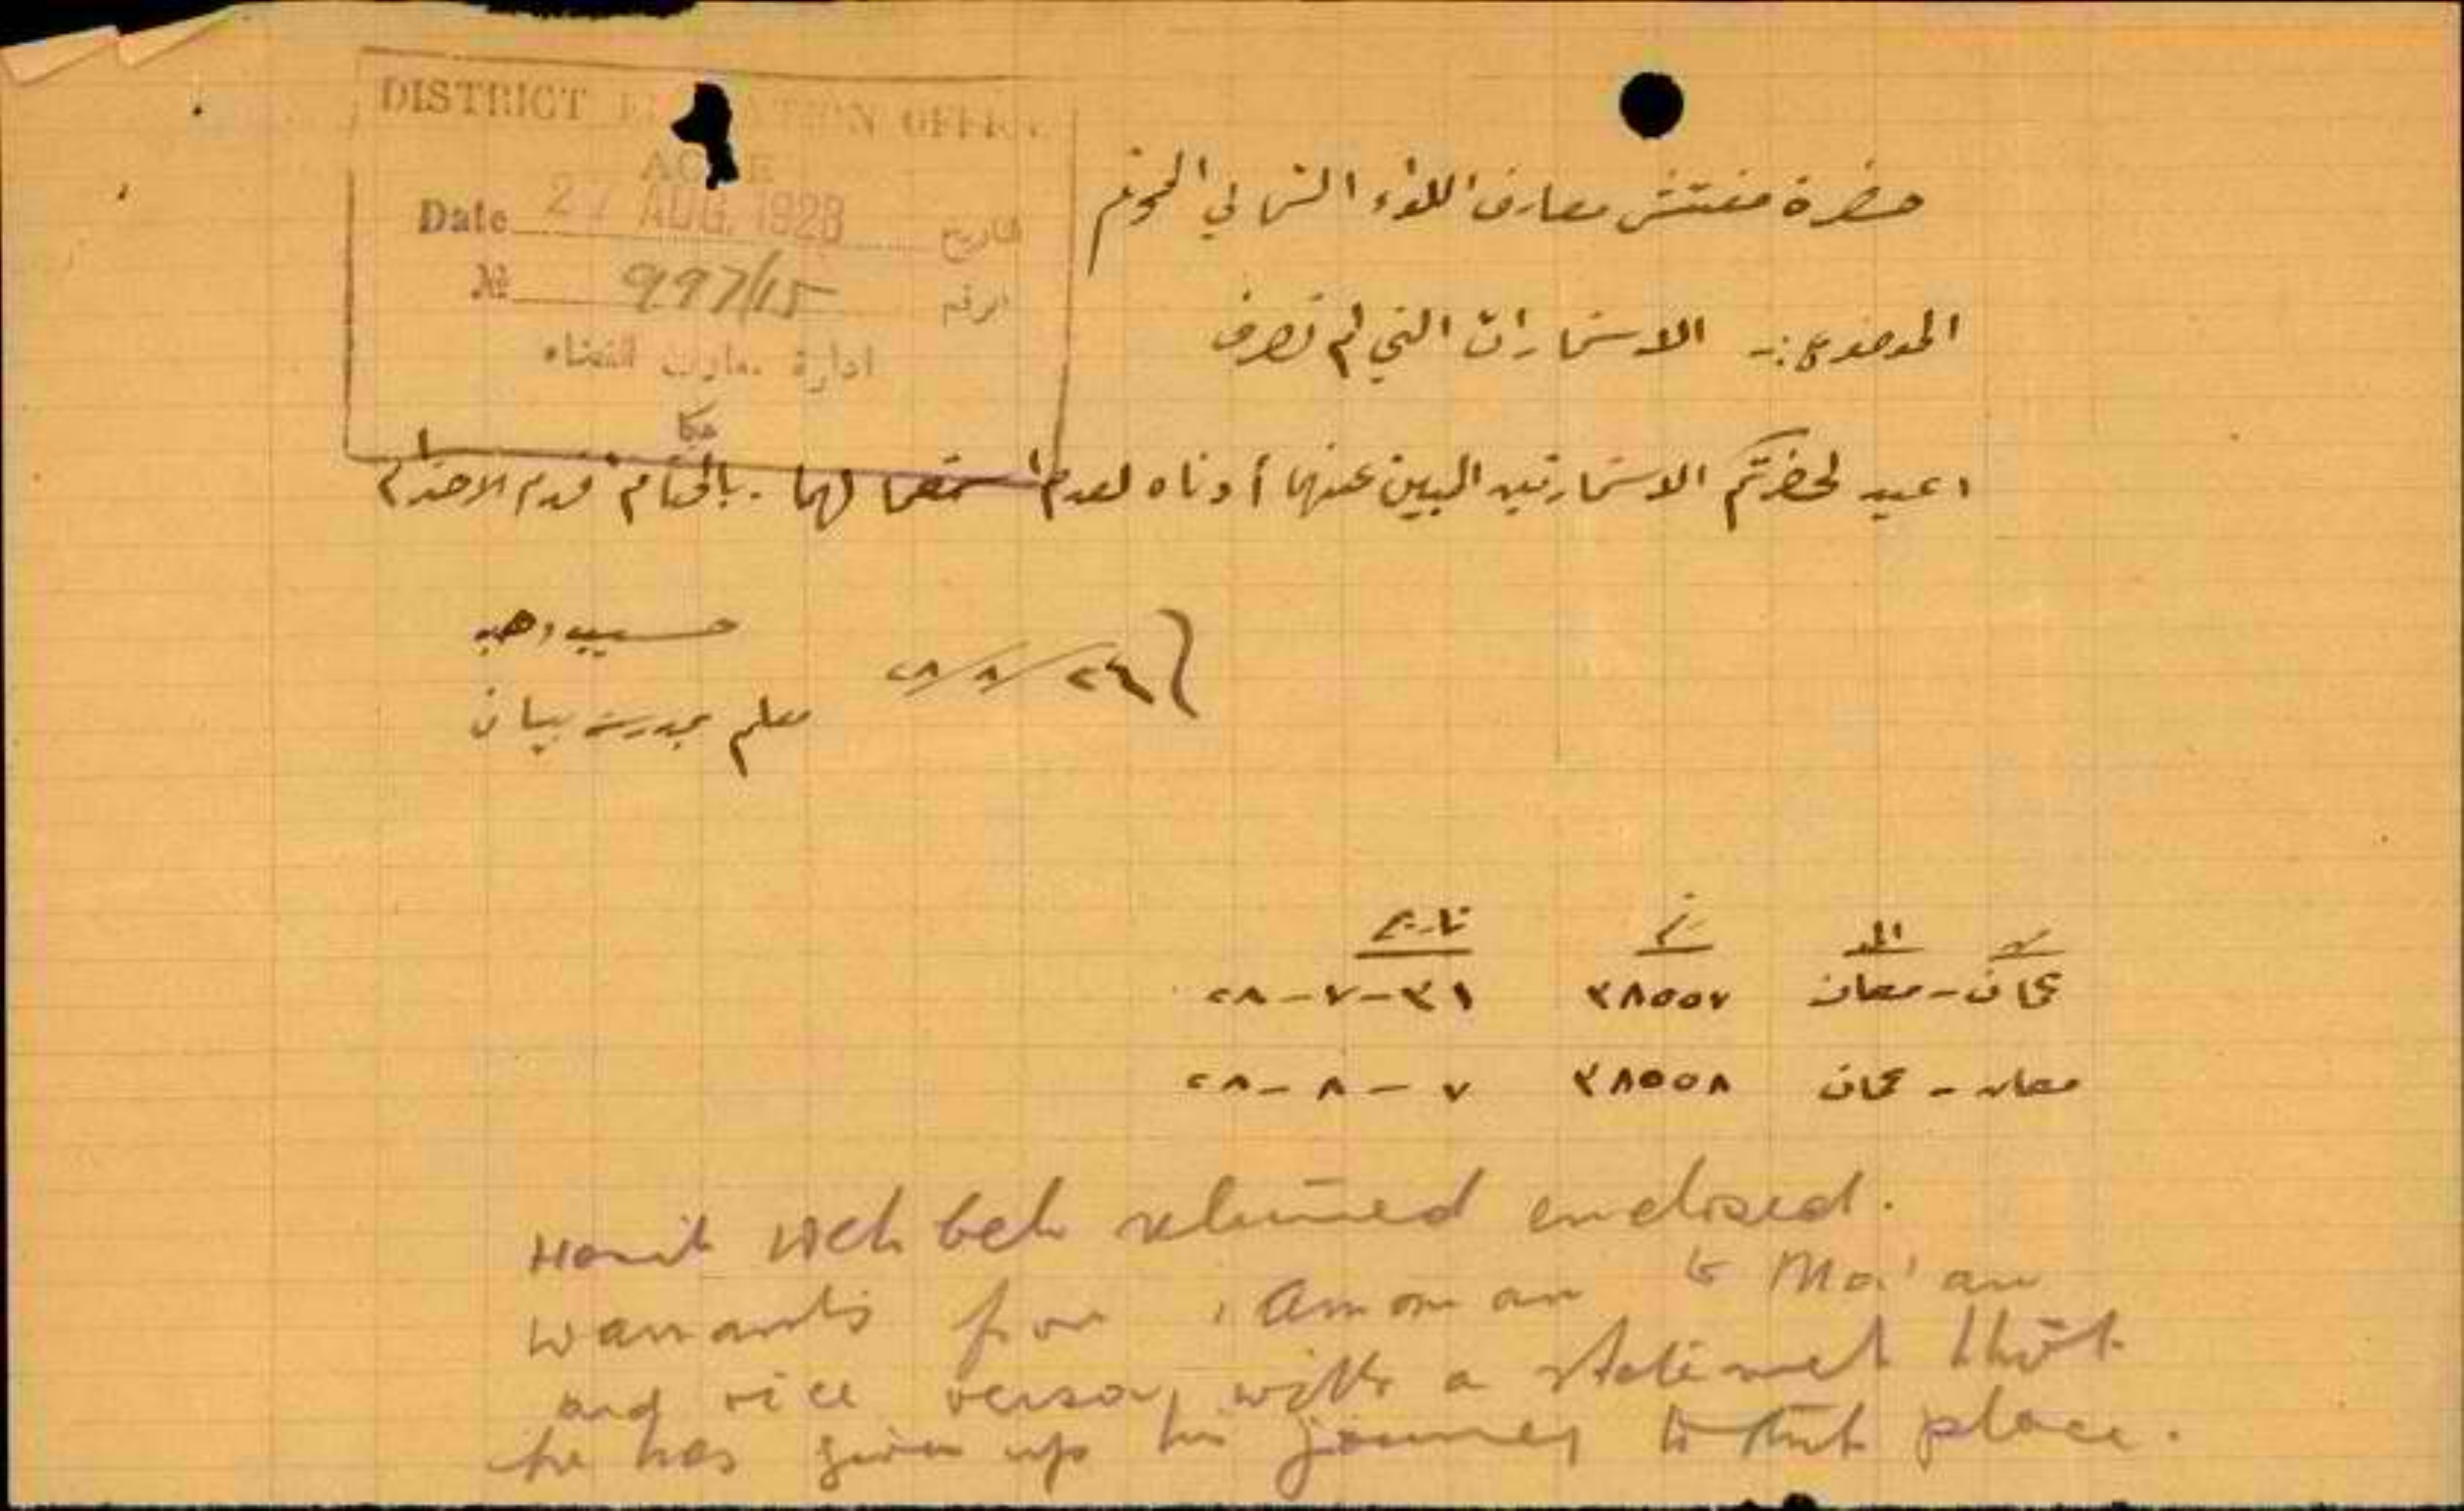 DISTRICT EDUCATION OFFICE
ACRE
Date 27 AUG. 1928 تاريخ
№ 997/15 الرقم
ادارة معارف القضاء
عكا
حضرة مفتش معارف اللواء الشمالي المحترم
الموضوع :- الاستمارات التي لم تصرف
اعيد لحضرتكم الاستمارتين المبين عنهما أدناه لعدم استعمالهما . بالختام اقدم الاحترام
حسيب وهبه
٢٨/٨/٢٤
معلم بمدرسة بيسان
من الى رقم تاريخ
عمان - معان ٣٨٥٥٧ ٣١-٧-٢٨
معان - عمان ٣٨٥٥٨ ٧-٨-٢٨
returned enclosed.
warrants from Amman to Ma'an
and vice versa, with a statement that
he has given up his journey to that place.